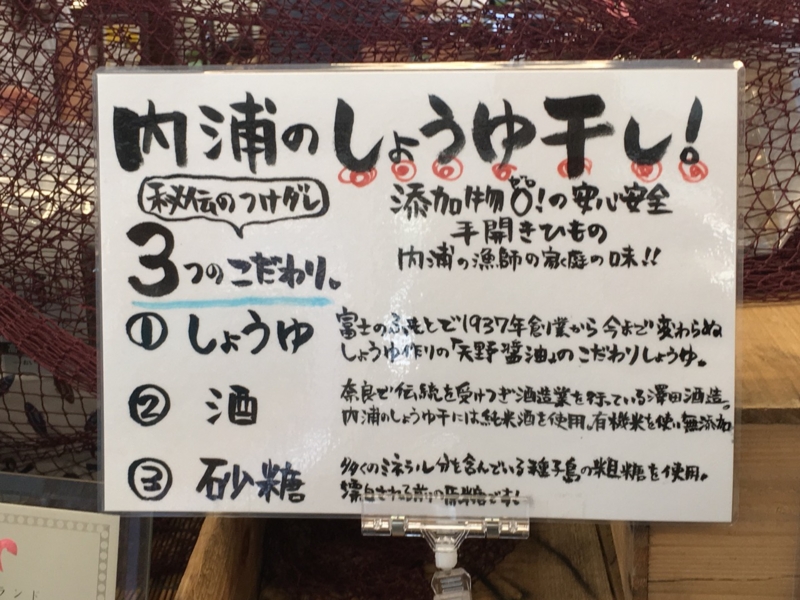 内浦のしょうゆ干し!
秘伝のつけダレ
3つのこだわり。
添加物0!の安心安全
ゼロ
手開きひもの
内浦の漁師の家庭の味!!
① しょうゆ
富士のふもとで1937年創業から今まで変わらぬ
しょうゆ作りの「天野醤油」のこだわりしょうゆ。
② 酒
奈良で伝統を受けつぎ酒造業を行っている澤田酒造。
内浦のしょうゆ干には純米酒を使用。有機米を使い無添加
③ 砂糖
多くのミネラル分を含んでいる種子島の粗糖を使用。
漂白される前の原糖です!
ランド